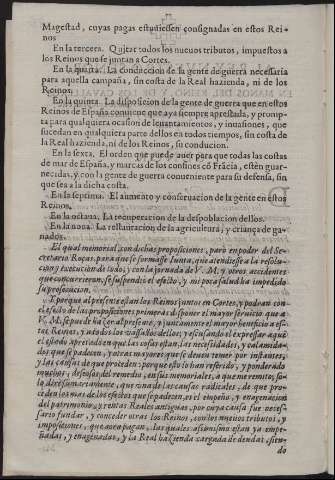 Magestad, cuyas pagas estuuiessen consignadas en estos Rei-
nos.
En la tercera. Quitar todos los nueuos tributos, impuestos a
los Reinos que se juntan a Cortes.
En la quarta. La conduccion de la gente de guerra necessaria
para aquella campaña, sin costa de la Real hazienda, ni de los
Reinos.
En la quinta. La disposicion de la gente de guerra que en estos
Reinos de España conuiene que aya siempre aprestada, y promp-
ta para qualquiera ocasion de leuantamientos, y inuasiones, que
sucedan en qualquiera parte dellos en todos tiempos, sin costa de
la Real hazienda, ni de los Reinos, su conducion.
En la sexta. El orden que puede auer para que todas las costas
de mar de España, y marcas de los confines cō Frācia, estèn guar-
necidas, y con la gente de guerra conueniente para su defensa, sin
que sea a la dicha costa.
En la septima. El aumento y conseruacion de la gente en estos
Reinos.
En la octaua. La recuperacion de la despoblacion dellos.
En la nona. La restauracion de la agricultura, y criança de ga-
nados.
El qual memorial, con dichas proposiciones, parò en poder del Se-
cretario Roças, para que se formasse Iunta, que atendiesse a la resolu-
cion y execucion de todo, y con la jornada de V. M. y otros accidentes
que concurrieron, se suspendiò el efecto, y mi poca salud ha impedido
su prosecucion.
Y porque al presente estan los Reinos juntos en Cortes, y podran con
el efecto de las proposiciones primeras disponer el mayor seruicio que a
V. M. se puede hazer al presente, y juntamente el mayor beneficio a es-
tos Reinos, y a todos los vassallos dellos, y escusando el expressar aqui
el estado apretado en que las cosas estan, las necessidades, y calamida-
des que se padecen, y otras mayores que se deuen temer por instantes,
y las causas de que proceden, porque ello lo han referido, y ponderado
muchos, deseosos del remedio, en sus memoriales, a que me remito, so-
lo dirè sumariamente, que vna de las causas radicales, de que pro-
ceden los mas de los efectos que se padecen, es el empeño, y enagenacion
del patrimonio, y rentas Reales antiguas, por cuya causa fue neces-
sario fundar, y conceder otras los Reinos, con los nueuos tributos, y
imposiciones, que aora pagan, las quales assimismo estan ya empe-
ñadas, y enagenadas, y la Real hazienda cargada de deudas, sien-
do